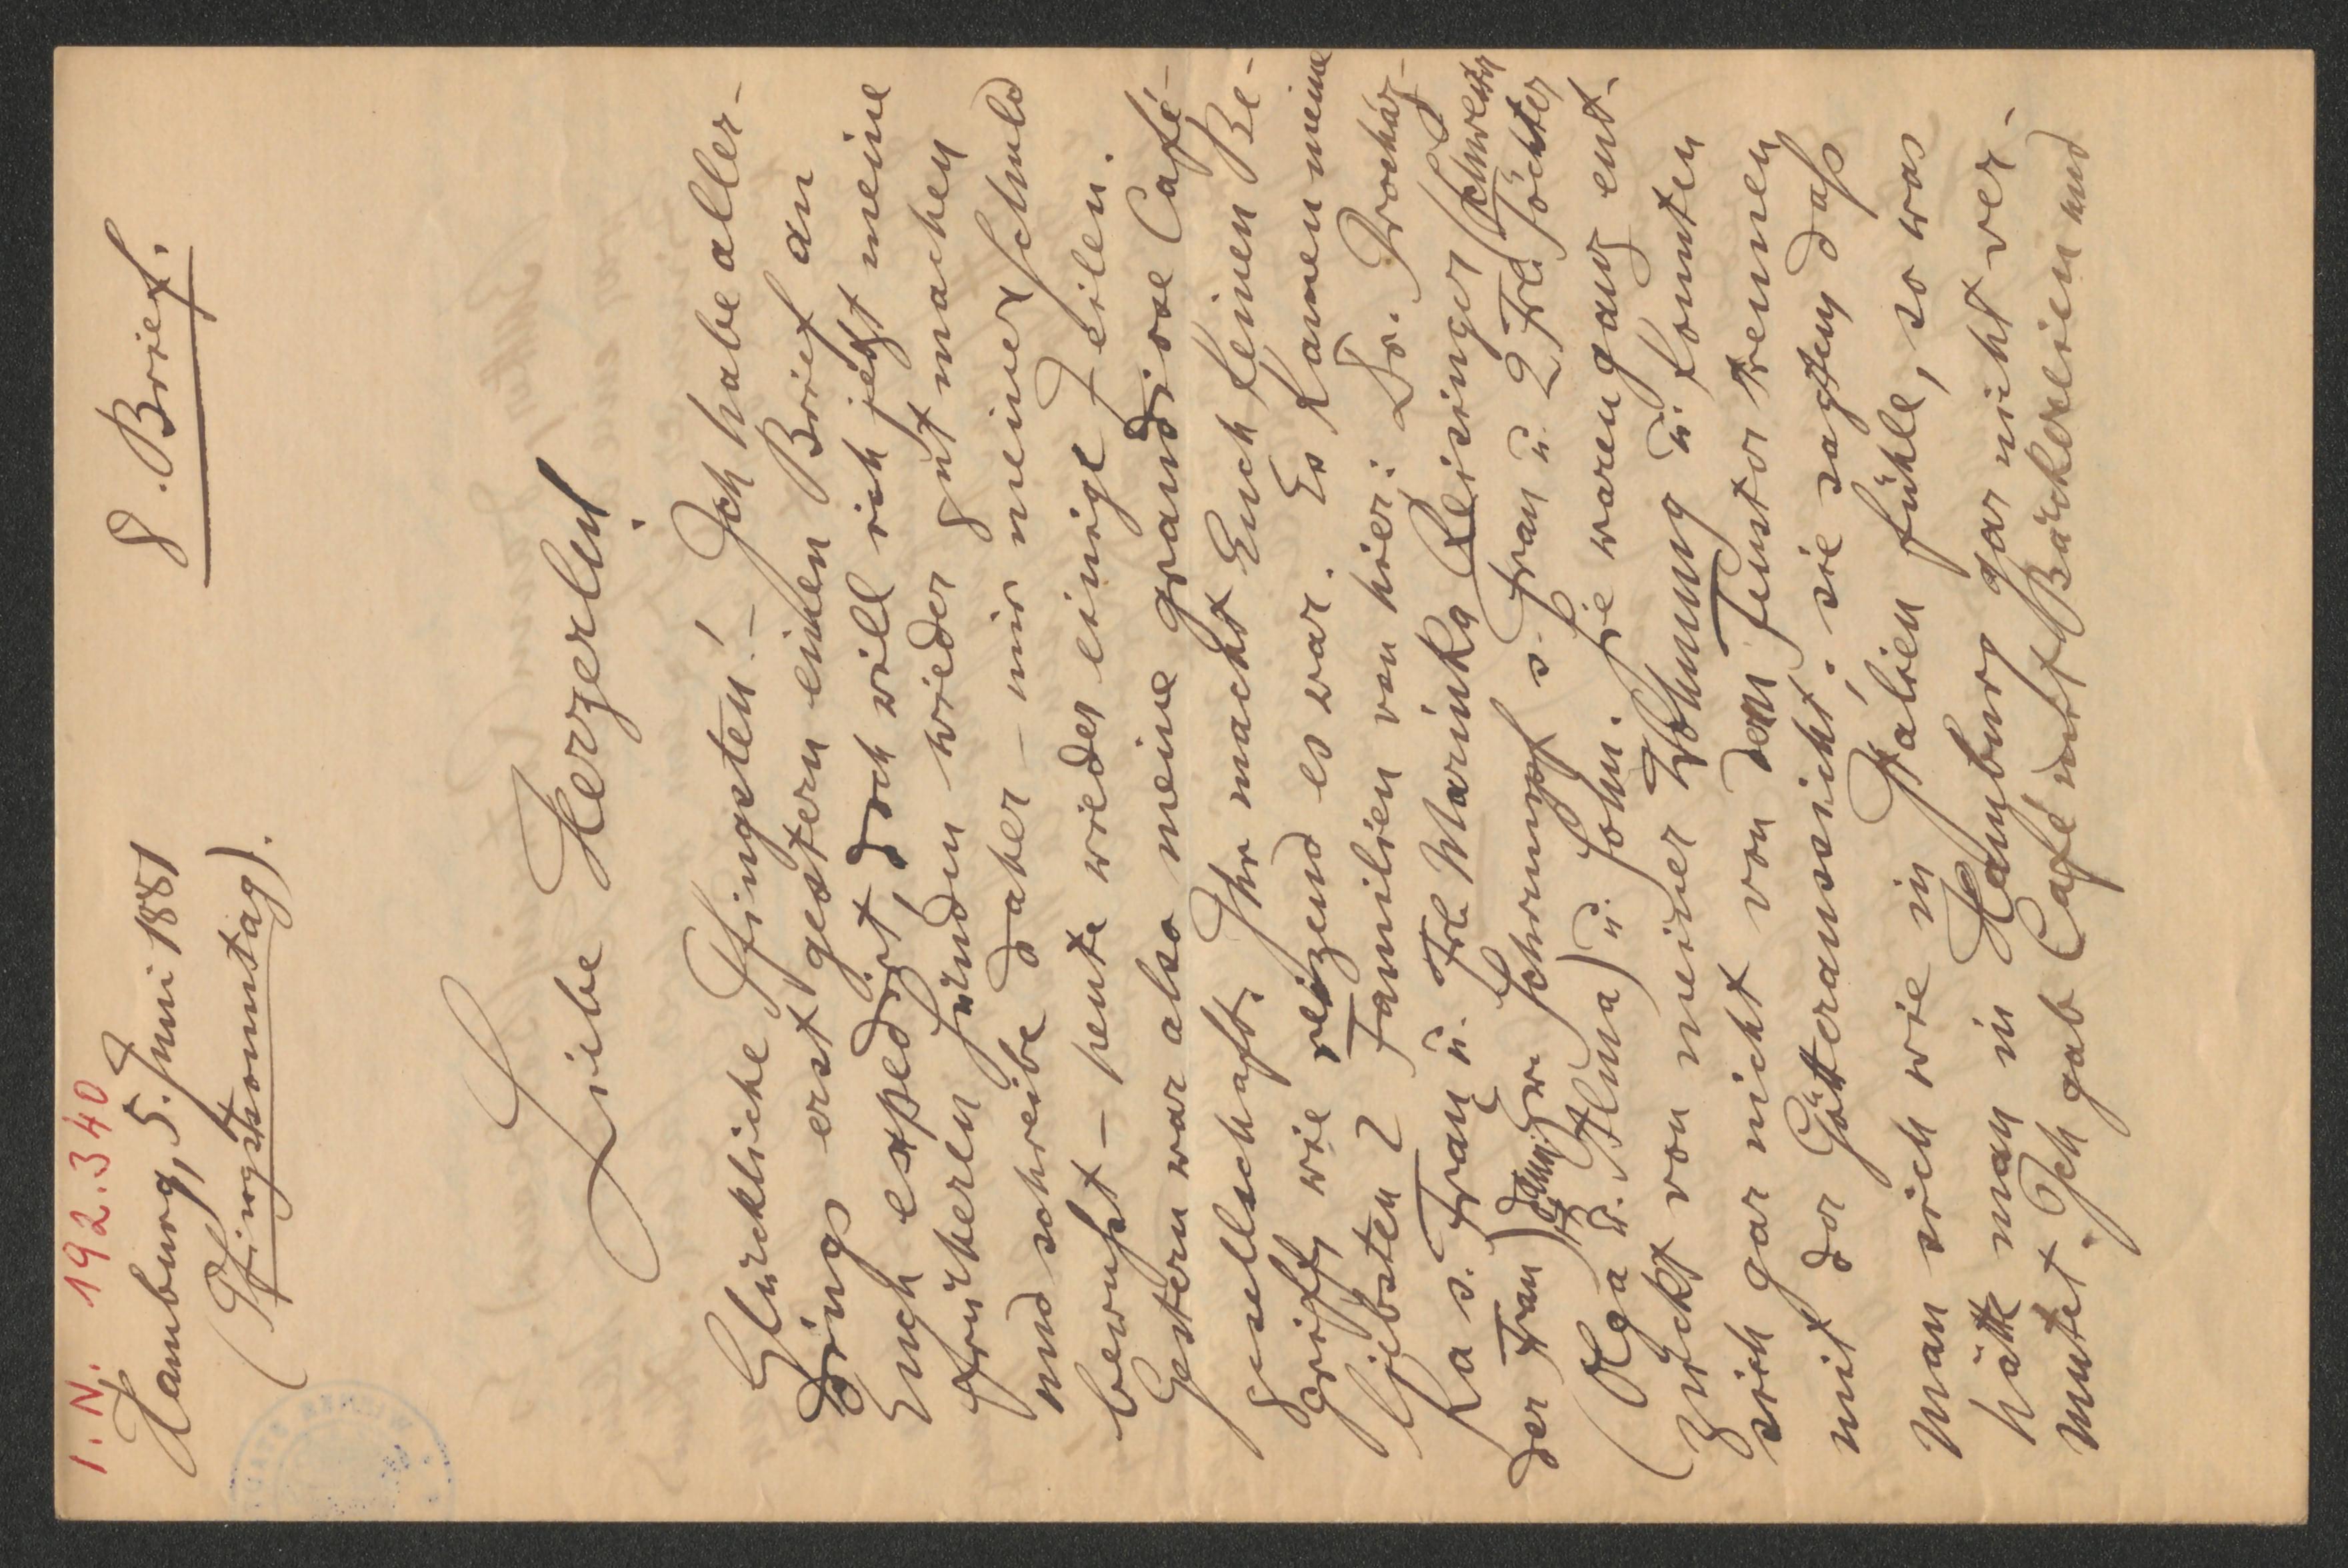 I. N. 192.340
Hamburg, 5. Juni 1881
8. Brief.
(Pfingstsonntag).
Liebe Herzerln!
Glückliche Pfingsten! – Ich habe aller-
dings erst gestern einen Brief an
Euch expedirt, doch will ich jetzt meine
früheren Sünden wieder gut machen
und schreibe daher – mir meiner Schuld
bewußt – heute wieder einige Zeilen.
Gestern war also meine grandiose Café-
gesellschaft. Ihr macht Euch keinen Be-
griff, wie reizend es war. Es kamen meine
liebsten 2 Familien von hier: Dr. Prochás-
ka s. Frau u. Frl. Marinka Reisinger (Schwester
der Frau) dann Hr. Schrumpf s. Frau u. 2 Frl. Töchter
(Olga u. Ilma) u. Sohn. Sie waren ganz ent-
zückt von meiner Wohnung u. konnten
sich gar nicht von dem Fenster trennen
mit der Götteraussicht; sie sagten, daß
man sich wie in Italien fühle, so was
hätte man in Hamburg gar nicht ver-
mutet. Ich gab Café nebst Bäckereien und